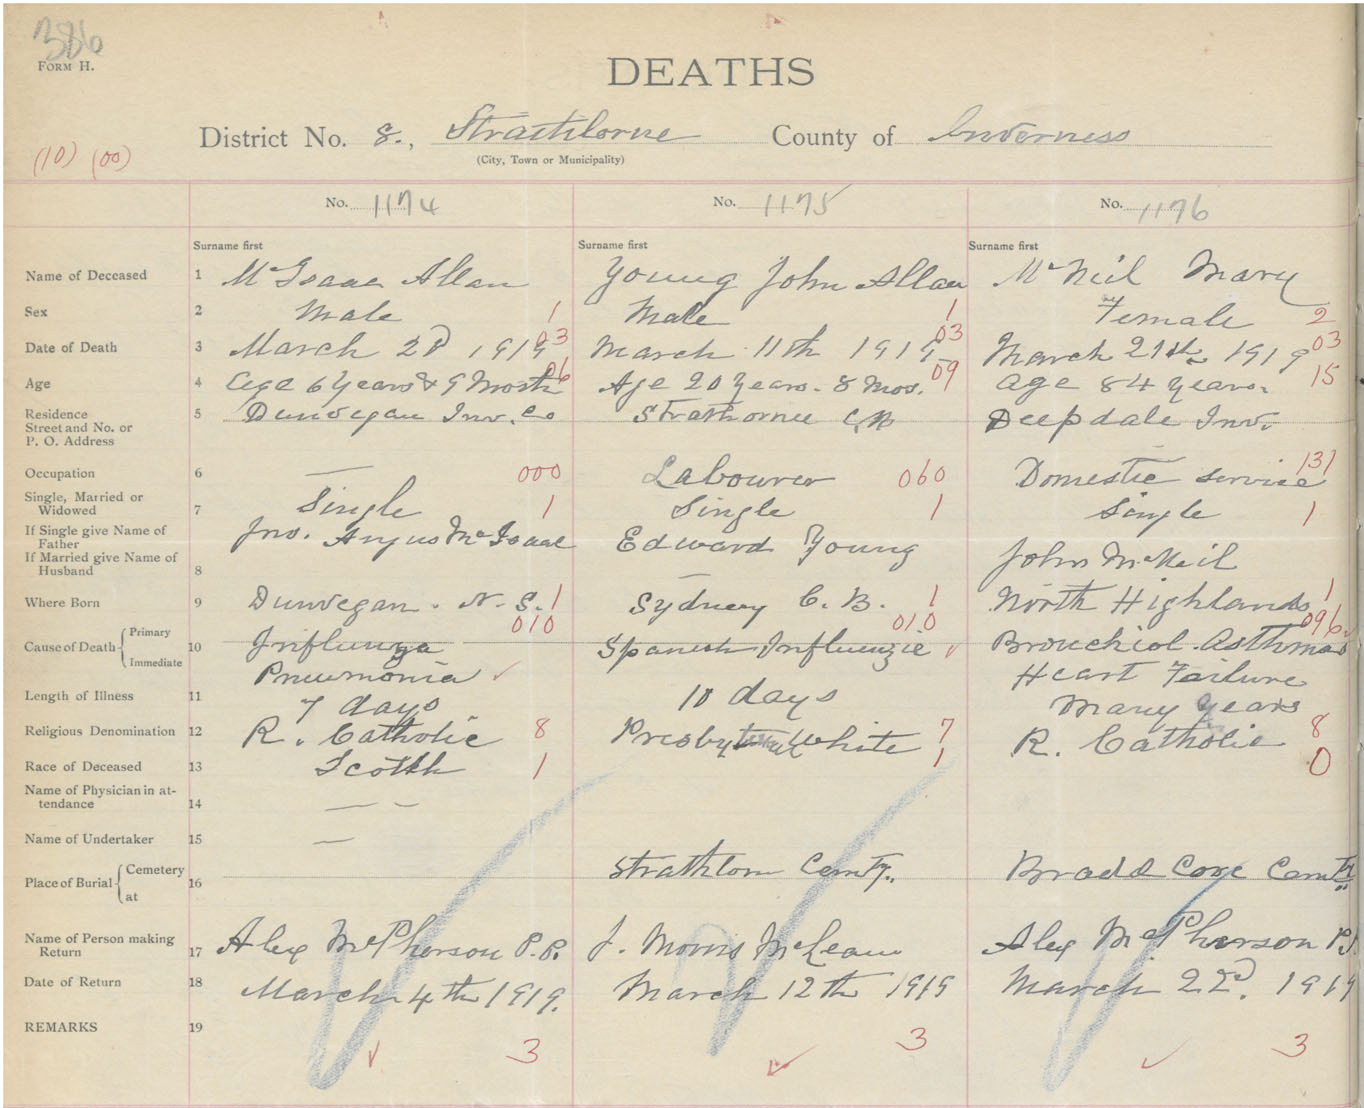 386
FORM H.
DEATHS
District No. 8., Strathlorne County of Inverness
(City, Town or Municipality)
(10) (00)
No. 1174 No. 1175 No. 1176
Surname first Surname first Surname first
Name of Deceased 1 McIsaac Allan Young John Allan McNeil Mary
Sex 2 Male 1 Male 1 Female 2
Date of Death 3 March 2d 1919 03 March 11th 1919 03 March 21st 1919 03
Age 4 Age 6 Years & 9 Month 06 Age 20 Years. 8 Mos. 09 age 84 years. 15
Residence
Street and No. or
P. O. Address
5 Dunvegan Inv. Co Strathornee C,B Deepdale Inv.
Occupation 6 — 000 Labourer 060 Domestic service 131
Single, Married or
Widowed
7 Single 1 Single 1 Single 1
If Single give Name of
Father
If Married give Name of
Husband
8 Jno. Angus McIsaac Edward Young John McNeil
Where Born 9 Dunvegan. N. S. 1 Sydney C. B. 1 North Highlands 1
Cause of Death Primary
Immediate
10 Influenza 010 Spanish Influenzie 010 Bronchiol Asthmas 096
Pneumonia Heart Failure
Length of Illness 11 7 days 10 days Many years
Religious Denomination 12 R. Catholic 8 Presby White 7 R. Catholic 8
Race of Deceased 13 Scotth 1 1 0
Name of Physician in at-
tendance
14 — —
Name of Undertaker 15 —
Place of Burial Cemetery
at
16 Strathlorn Cemty. Broad Cove Cemty
Name of Person making
Return
17 Alex McPherson P.P. J. Morris McLean Alex McPherson P.P.
Date of Return 18 March 4th 1919. March 12th 1919 March 22d. 1919
REMARKS 19
3 3 3